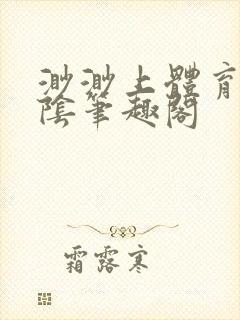 渺渺上體育
陰筆趣閣
霜露寒